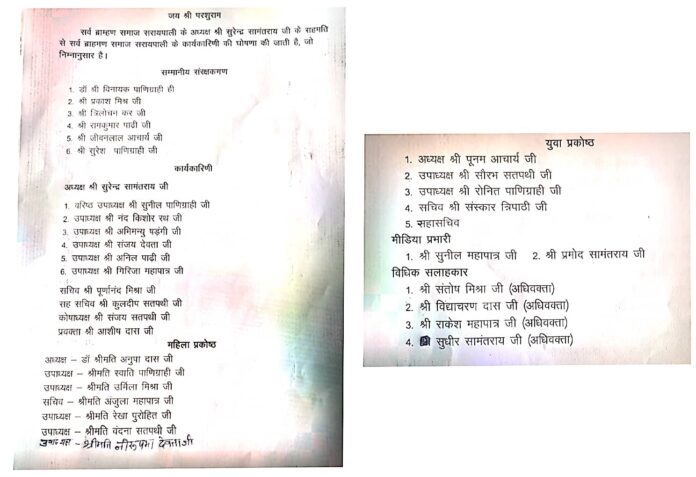 जय श्री परशुराम
सर्व ब्राम्हण समाज सरायपाली के अध्यक्ष श्री सुरेन्द्र सामंतराय जी के सहमति
से सर्व ब्राहमण समाज सरायपाली के कार्यकारिणी की घोषणा की जाती है, जो
निम्नानुसार है।
सम्मानीय संरक्षकगण
1. डॉ श्री विनायक पाणिग्राही ही
2. श्री प्रकाश मिश्र जी
3. श्री त्रिलोचन कर जी
4. श्री रामकुमार पाढी जी
5. श्री जीवनलाल आचार्य जी
6. श्री सुरेश पाणिग्राही जी
कार्यकारिणी
अध्यक्ष श्री सुरेन्द्र सामंतराय जी
1. वरिष्ठ उपाध्यक्ष श्री सुनील पाणिग्राही जी
2. उपाध्यक्ष श्री नंद किशोर रथ जी
3. उपाध्यक्ष श्री अभिमन्यु षड़ंगी जी
4. उपाध्यक्ष श्री संजय देवता जी
5. उपाध्यक्ष श्री अनिल पाढ़ी जी
6. उपाध्यक्ष श्री गिरिजा महापात्र जी
सचिव श्री पूर्णानंद मिश्रा जी
सह सचिव श्री कुलदीप सतपथी जी
कोषाध्यक्ष श्री संजय सतपथी जी
प्रवक्ता श्री आशीष दास जी
महिला प्रकोष्ठ
अध्यक्ष – डॉ श्रीमति अनुपा दास जी
उपाध्यक्ष – श्रीमति स्वाति पाणिग्राही जी
उपाध्यक्ष – श्रीमति उर्मिला मिश्रा जी
सचिव – श्रीमति अंजुला महापात्र जी
उपाध्यक्ष – श्रीमति रेखा पुरोहित जी
उपाध्यक्ष – श्रीमति वंदना सतपथी जी
उपाध्यक्ष – श्रीमति नीरूपमा देवता जी
युवा प्रकोष्ठ
1. अध्यक्ष श्री पूनम आचार्य जी
2. उपाध्यक्ष श्री सौरभ सतपथी जी
3. उपाध्यक्ष श्री रोनित पाणिग्राही जी
4. सचिव श्री संस्कार त्रिपाठी जी
5. सहासचिव
मीडिया प्रभारी
1. श्री सुनील महापात्र जी 2. श्री प्रमोद सामंतराय जी
विधिक सलाहकार
1. श्री संतोष मिश्रा जी (अधिवक्ता)
2. श्री विद्याचरण दास जी (अधिवक्ता)
3. श्री राकेश महापात्र जी (अधिवक्ता)
4. श्री सुधीर सामंतराय जी (अधिवक्ता)